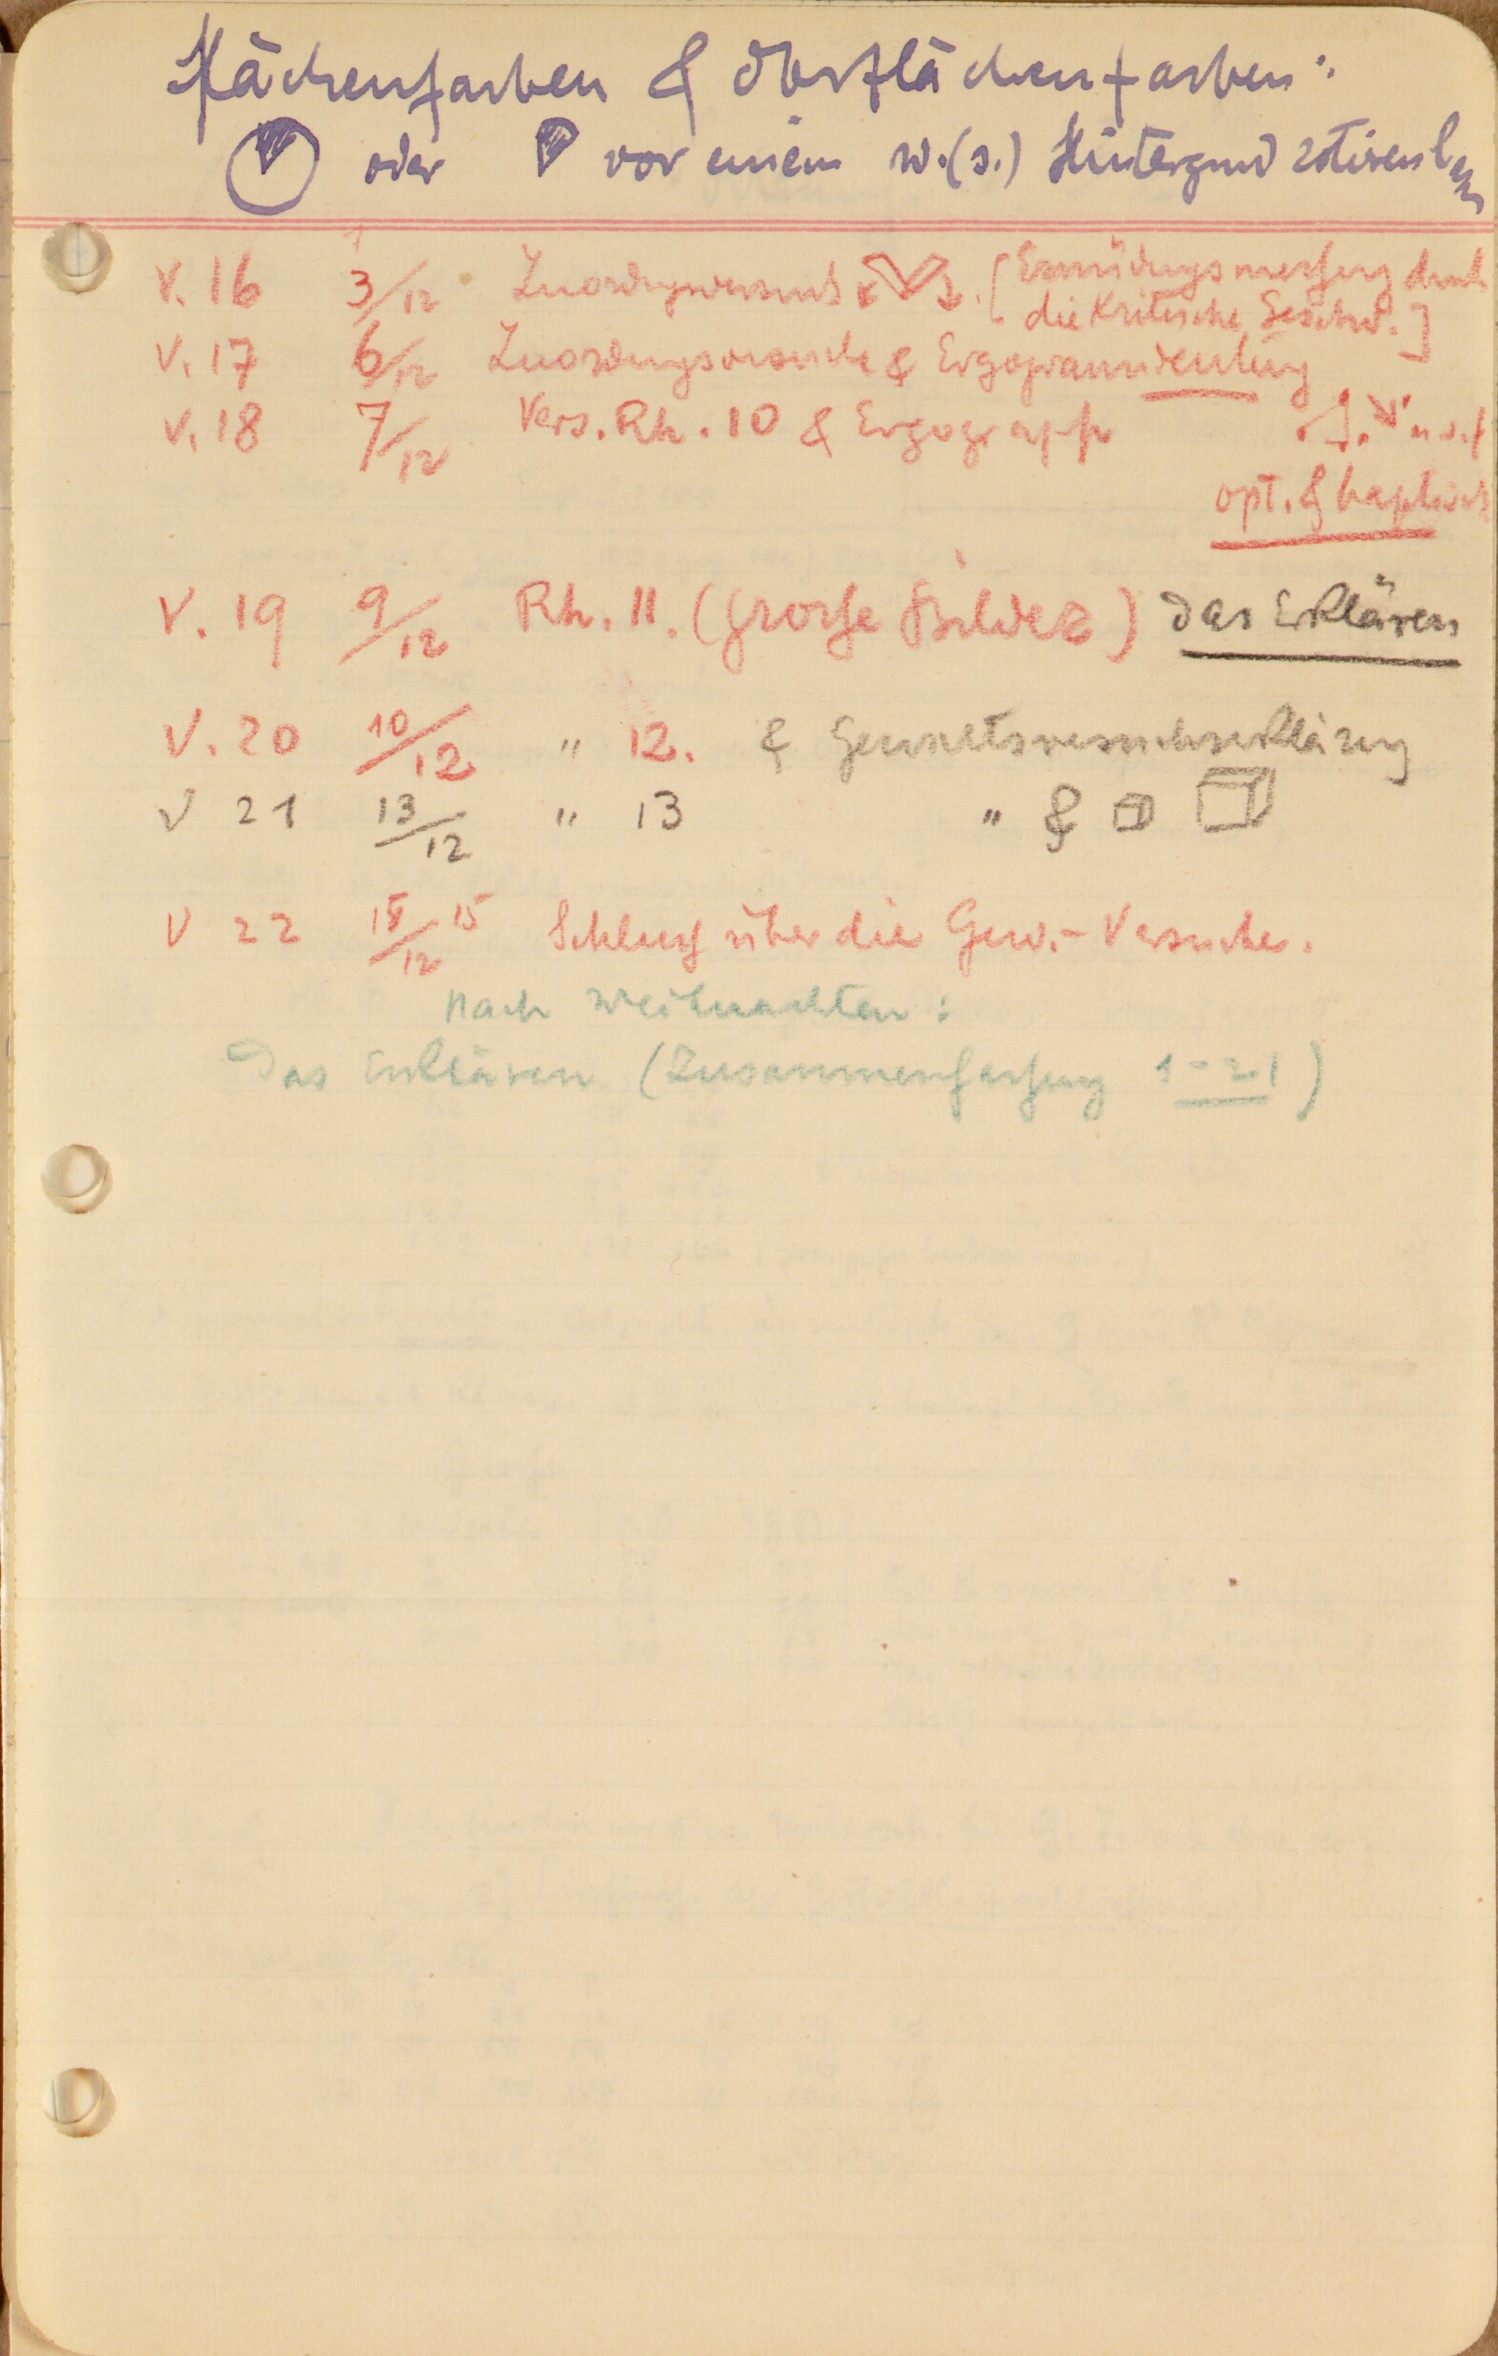 Flächenfarben & Oberflächenfarben:
oder vor einem w.(s.) Hintergrund rotieren
V. 16 3/12 Zuordnungsversuch [Ermüdungsmessung durch
die Kritische Geschw.]
V. 17 6/12 Zuordnungsversuche &
V. 18 7/12 Vers. Rh. 10 & Ergograph u.s.f
opt. & haptisch
V. 19 9/12 Rh. 11. (grosse Bilder) das Erklären
V. 20 10/12 " 12. & Gewichtsversuchserklärung
V 21 13/12 " 13 " &
V 22 15/12 15 Schluss über die Gew.-Versuche.
nach Weihnachten:
Das Erklären (Zusammenfassung 1-21)